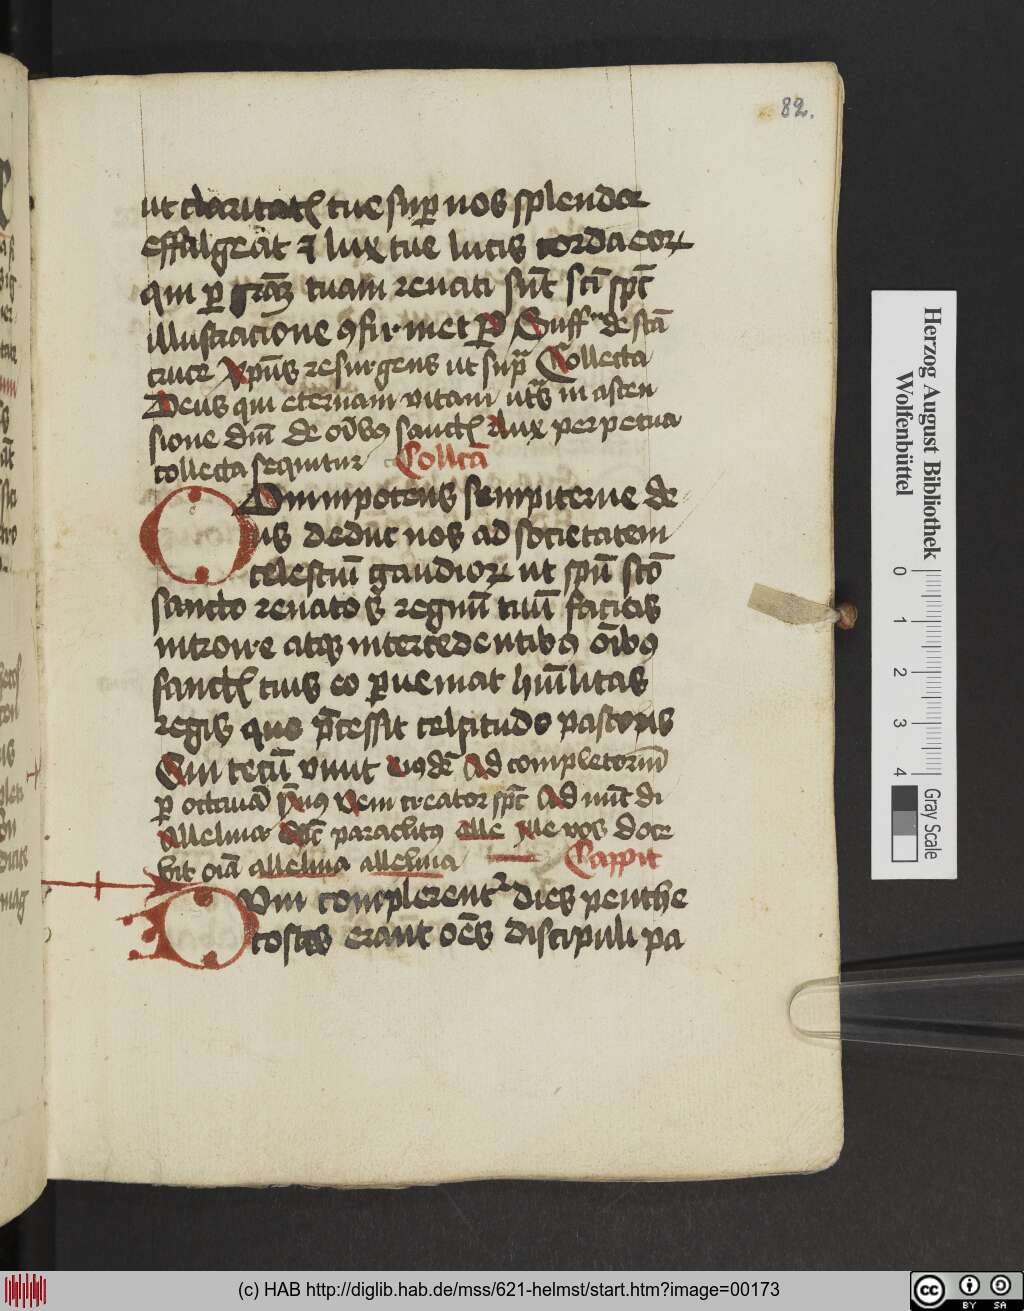 82.
ut claritatꝭ tue suꝑ nos splendor
effulgeat ⁊ lux tue lucis corda eoꝝ
qui ꝑ grãȝ tuam renati sũt sc̄i sp̄c
illustracione ꝯfirmet ꝑ Suff de sc̄a
cruce Xpūs resurgens ut supͣ Collecta
Deus qui eternam vitam in ascen
sione dn̄i de oībꝰ sanctꝭ Aux perpetua
collecta sequitur Collc̄a
Omnipotens sempiterne de
us deduc nos ad societatem
celestiū gaudioꝝ ut spū sc̄o
sancto renatos regnū tuū facias
introire atqꝫ intercedentibꝰ oībꝰ
sanctꝭ tuis eo ꝑueniat hūilitas
regis quo p̄cessit celsitudo pastoris
Qui tecū viuit eiꝰdē Ad completoriū
ꝑ octauā ẏmꝰ Veni creator sp̄c Ad nūc di
Alleluia Sp̄c paraclitꝰ alle Ille vos doce
bit oīa alleluia alleluia Cappit
Dum complerentᷣ dies penthe
costes erant oēs discipuli pa
Herzog August Bibliothek
Wolfenbüttel
0 1 2 3 4
Gray Scale
(c) HAB http://diglib.hab.de/mss/621-helmst/start.htm?image=00173
cc BY SA